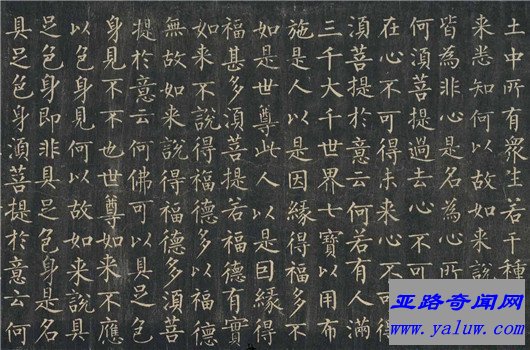 土中所有衆生若干種
来悉知何以故如来說
皆為非心是名為心所
何須菩提過去心不可
在心不可得未来心不可
須菩提於意云何若有人滿
三千大千世界七寶以用布
施是人以是因緣得福多不
如是世尊此人以是因緣得
福甚多須菩提若福德有實
如来不說得福德多以福德
無故如来說得福德多須菩
提於意云何佛可以具足色
身見不不也世尊如来不應
以色身見何以故如来說具
足色身即非具足色身是名
具足色身須菩提於意云何
亚路奇闻网
www.yaluw.com